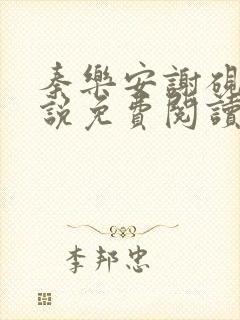 秦樂安謝硯
說免費閱讀
李邦忠